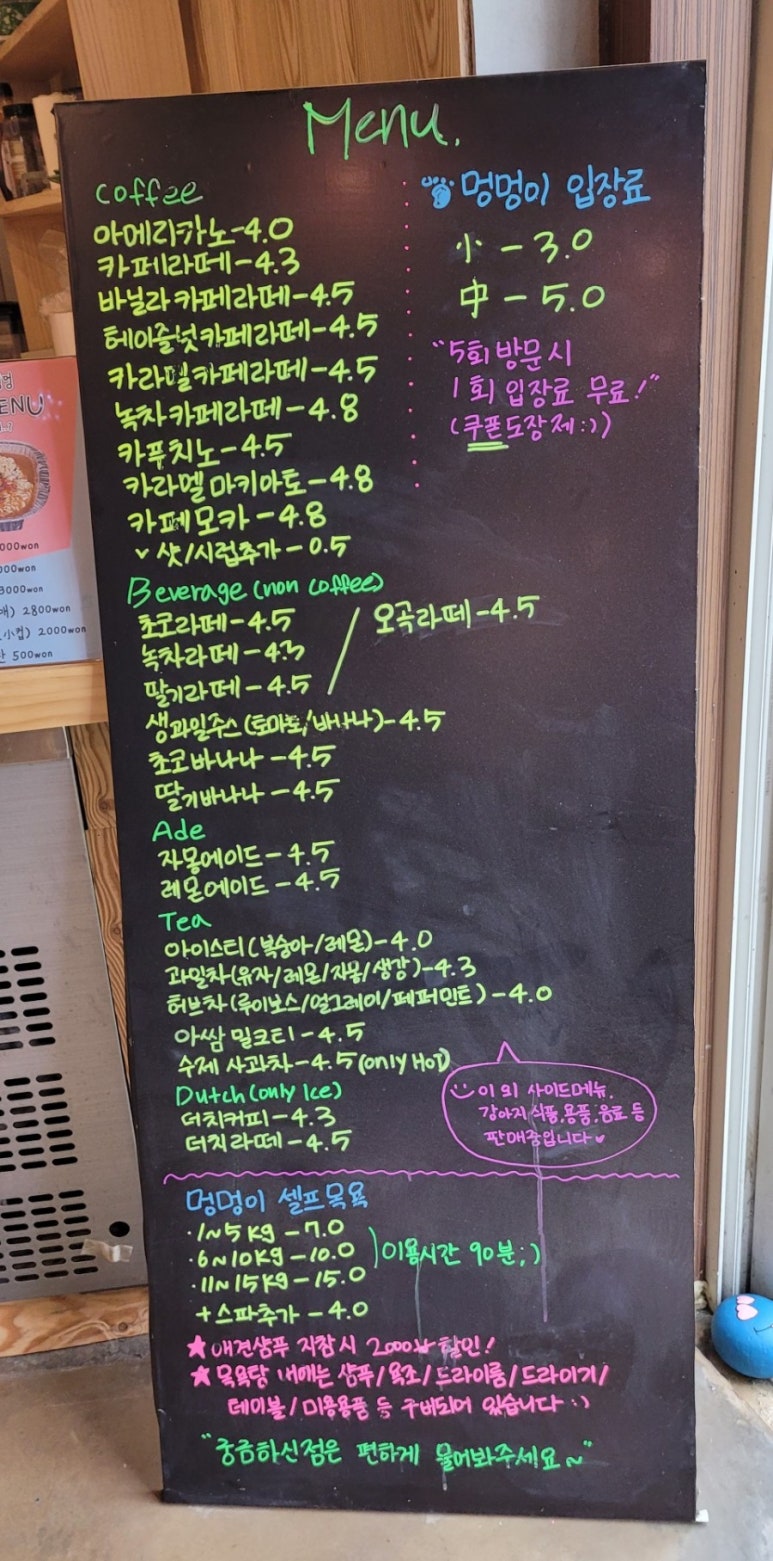 Menu.
coffee
아메리카노-4.0
카페라떼-4.3
바닐라카페라떼-4.5
헤이즐넛카페라떼-4.5
카라멜카페라떼-4.5
녹차카페라떼-4.8
카푸치노-4.5
카라멜마키아토-4.8
카페모카-4.8
v 샷/시럽추가-0.5
멍멍이 입장료
小-3.0
中-5.0
"5회 방문시
1회 입장료 무료!"
(쿠폰도장제:))
Beverage(non coffee)
초코라떼-4.5
녹차라떼-4.3
딸기라떼-4.5
오곡라떼-4.5
생과일주스(토마토/바나나)-4.5
초코바나나-4.5
딸기바나나-4.5
Ade
자몽에이드-4.5
레몬에이드-4.5
Tea
아이스티(복숭아/레몬)-4.0
과일차(유자/레몬/자몽/생강)-4.3
허브차(루이보스/얼그레이/페퍼민트)-4.0
아쌈 밀크티-4.5
수제 사과차-4.5(only HoT)
Dutch(only Ice)
더치커피-4.3
더치라떼-4.5
이 외 사이드메뉴,
강아지 식품,용품,음료 등
판매중입니다♥
멍멍이 셀프목욕
·1~5kg-7.0
·6~10kg-10.0
·11~15kg-15.0
)이용시간 90분;)
+스파추가-4.0
★애견샴푸 지참시 2000won 할인!
★목욕탕 내에는 샴푸/욕조/드라이룸/드라이기/
테이블/미용용품 등 구비되어 있습니다:)
"궁금하신점은 편하게 물어봐주세요~"
ENU
000won
000won
3000won
2800won
(小컵) 2000won
500won